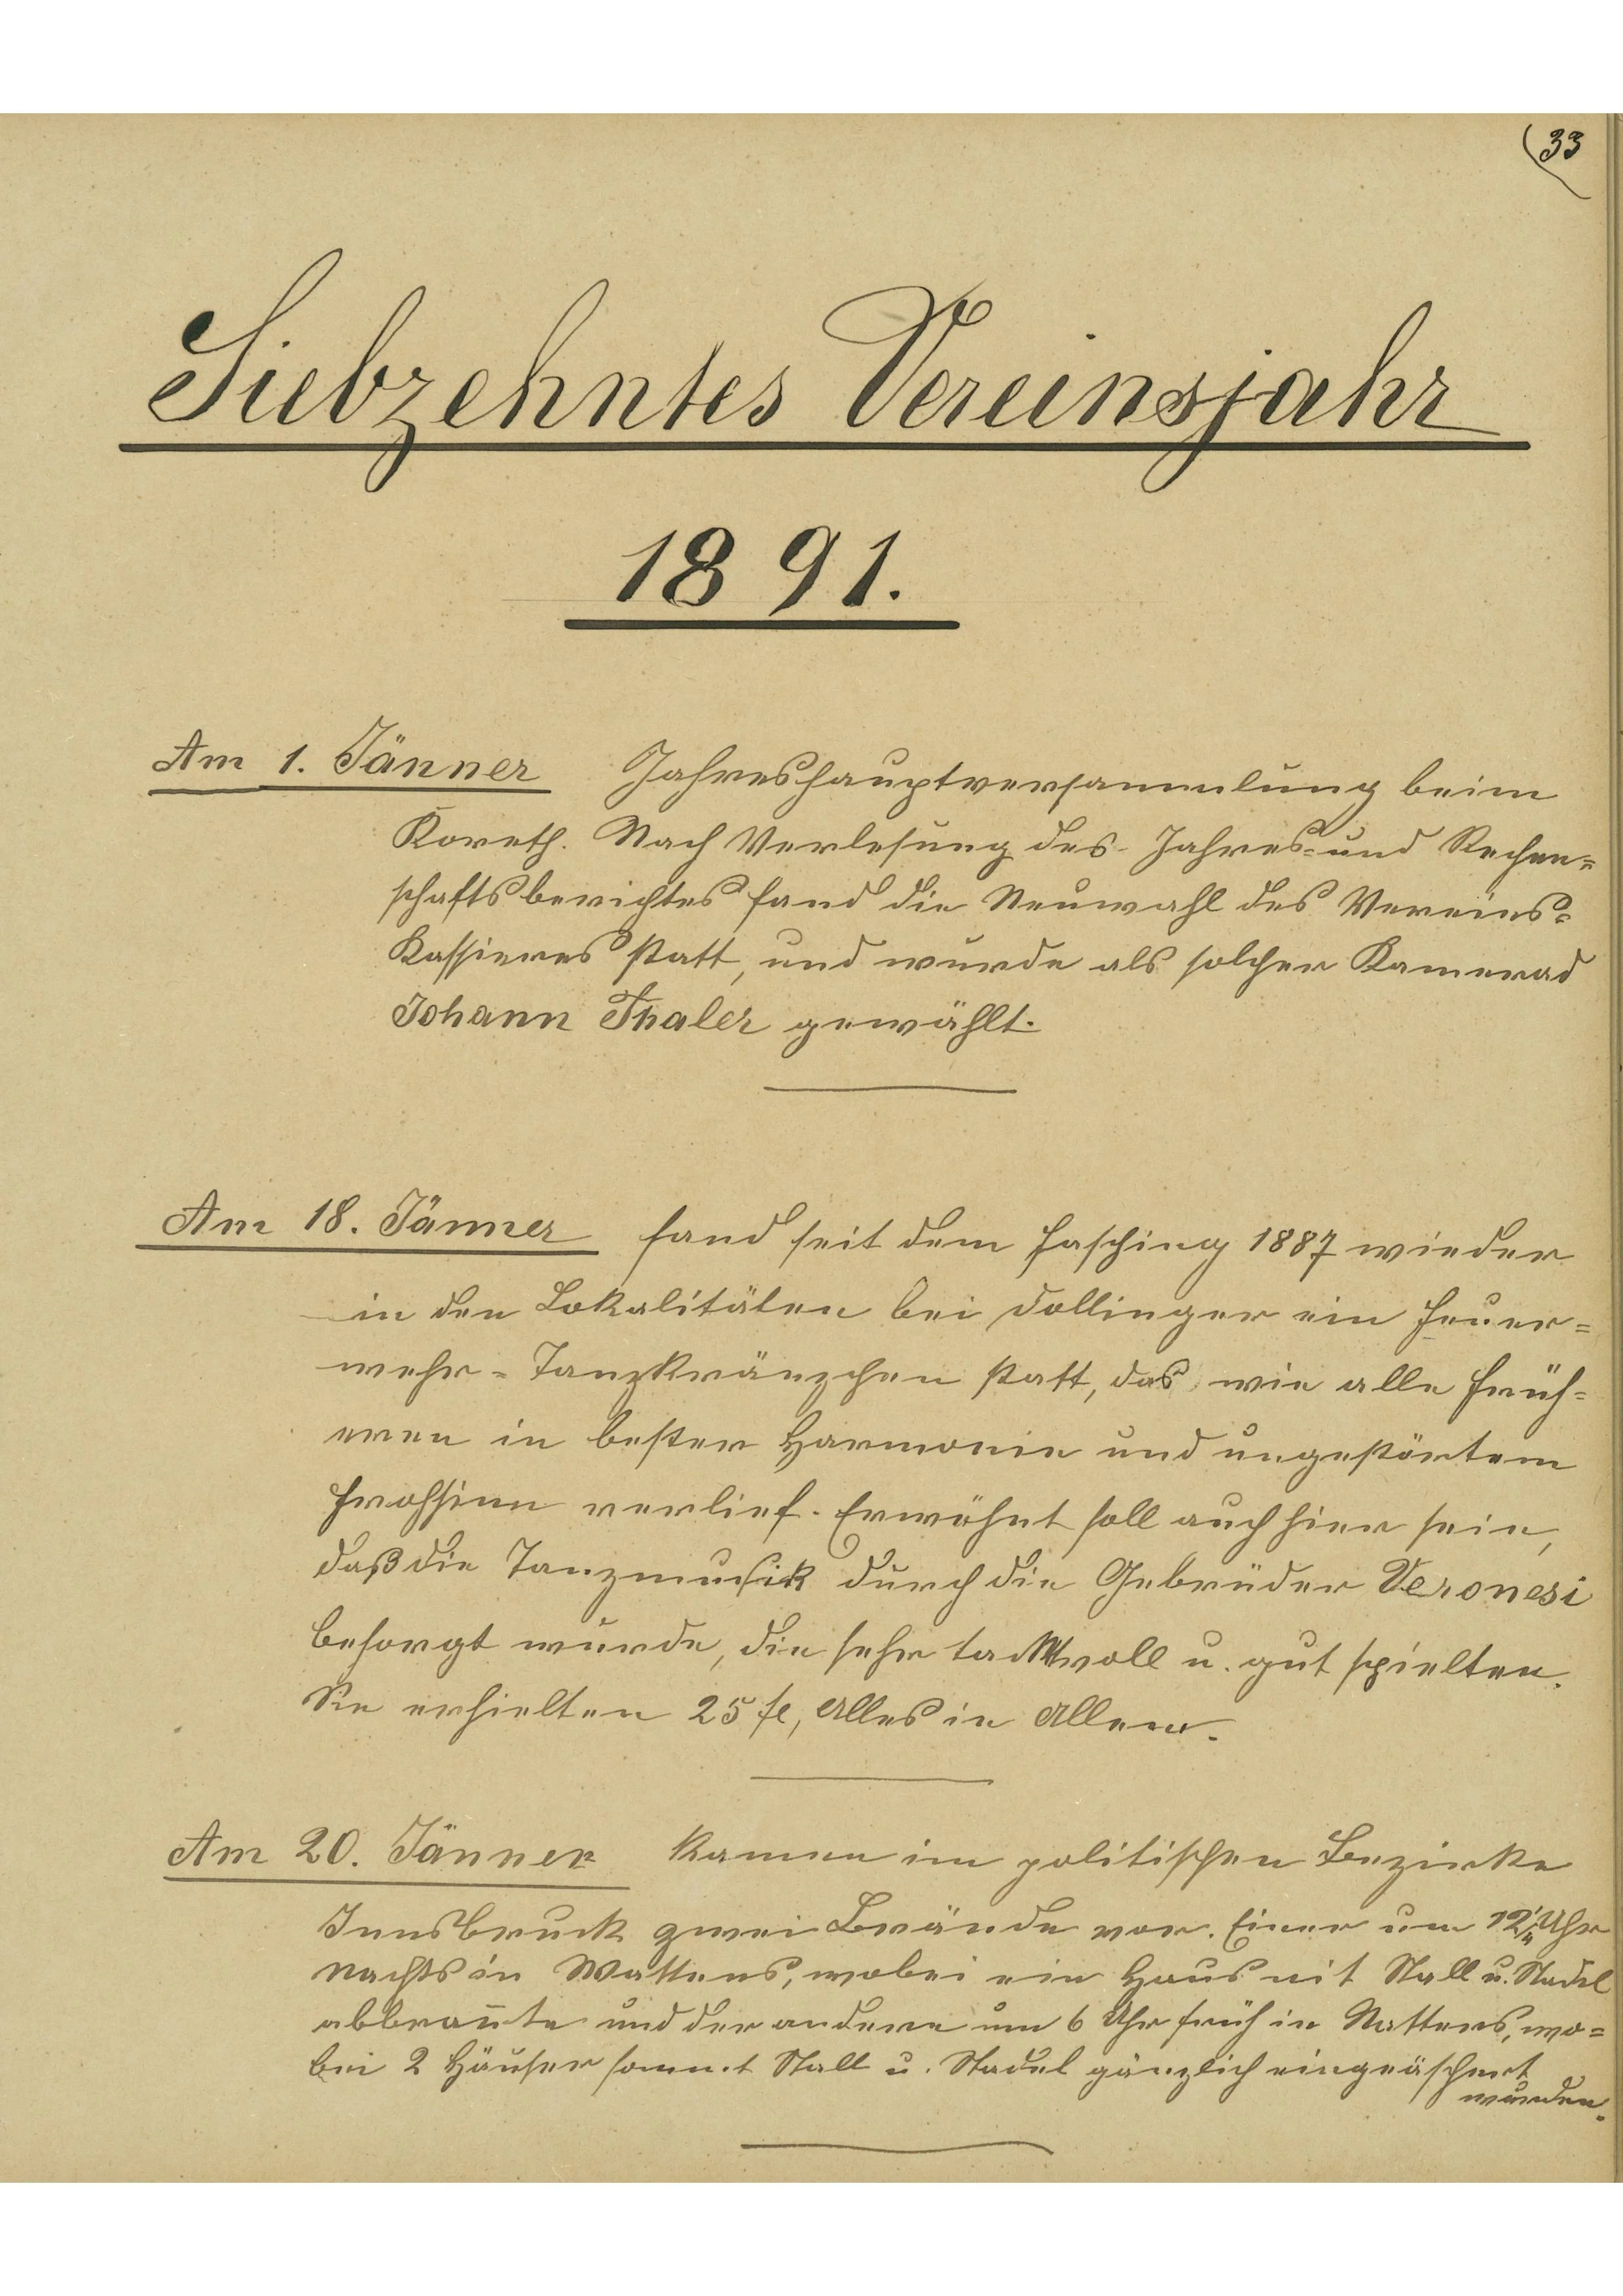 33
Siebzehntes Vereinsjahr
1891.
Am 1. Jänner Jahreshauptversammlung beim
Koreth. Nach Verlesung des Jahres- und Rechen=
schaftsberichtes fand die Neuwahl des Vereins=
Kassieres statt, und wurde als solcher Kamerad
Johann Thaler gewählt.
Am 18. Jänner fand seit dem Fasching 1887 wieder
in den Lokalitäten bei Dollinger ein Feuer=
wehr=Tanzkränzchen statt, das wie alle früh=
eren in bester Harmonie und ungestörtem
Frohsinn verlief. Erwähnt soll auch hier sein,
daß die Tanzmusik durch die Gebrüder Veronesi
besorgt wurde, die sehr taktvoll u. gut spielten.
Sie erhielten 25 fl, Alles in Allem.
Am 20. Jänner kamen im politischen Bezirke
Innsbruck zwei Brände vor. Einer um Uhr
Nachts in Wattens, wobei ein Haus mit Stall u. Stadel
abbrannte und der andere um 6 Uhr früh in Natters, wo=
bei 2 Häuser sammt Stall u. Stadel gänzlich eingeäschert
wurden.